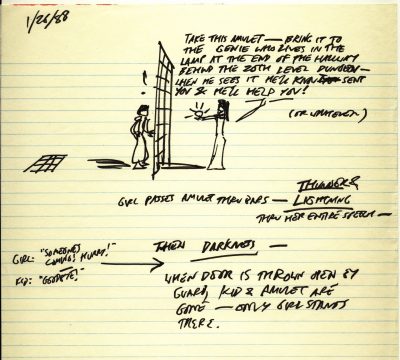 1/26/88
TAKE THIS AMULET — BRING IT TO
THE GENIE WHO LIVES IN THE
LAMP AT THE END OF THE HALLWAY
BEHIND THE 20TH LEVEL DUNGEON —
WHEN HE SEES IT HE'LL KNOW SENT
YOU & HE'LL HELP YOU!
(OR WHATEVER)
!
GIRL PASSES AMULET THRU BARS —
THUNDER &
LIGHTNING
THRU HER ENTIRE SPEECH —
GIRL: "SOMEONE'S
COMING! HURRY!"
KID:
THEN DARKNESS —
WHEN DOOR IS THROWN OPEN BY
GUARD, KID & AMULET ARE
GONE — ONLY GIRL STANDS
THERE.